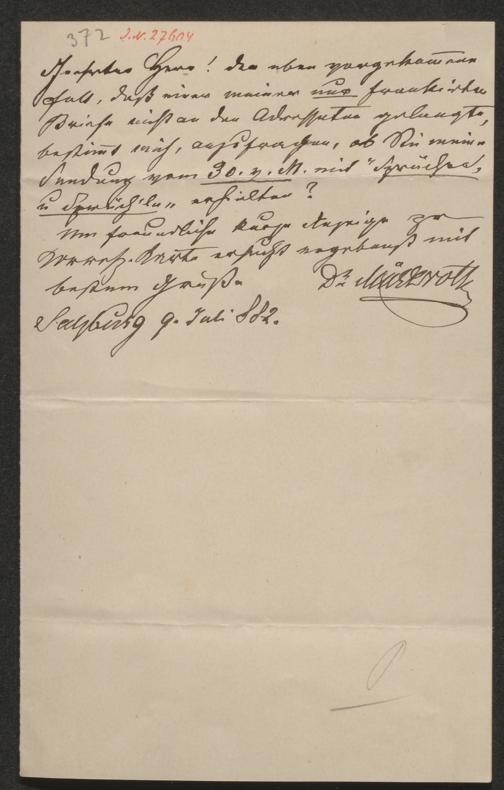 372 J.N. 27604
Geehrter Herr! Der eben vorgekommene
Fall, daß einer meiner nur frankirten
Briefe nicht an den Adressaten gelangte,
bestimmt mich, anzufragen, ob Sie meine
Sendung vom 30. v. M. mit "Sprüchen
u Sprüch'ln" erhielten?
Um freundliche kurze Anzeige per
Corresp. Karte ersucht ergebenst mit
bestem Gruße Dr. Märzroth
Salzburg 9. Juli 882.